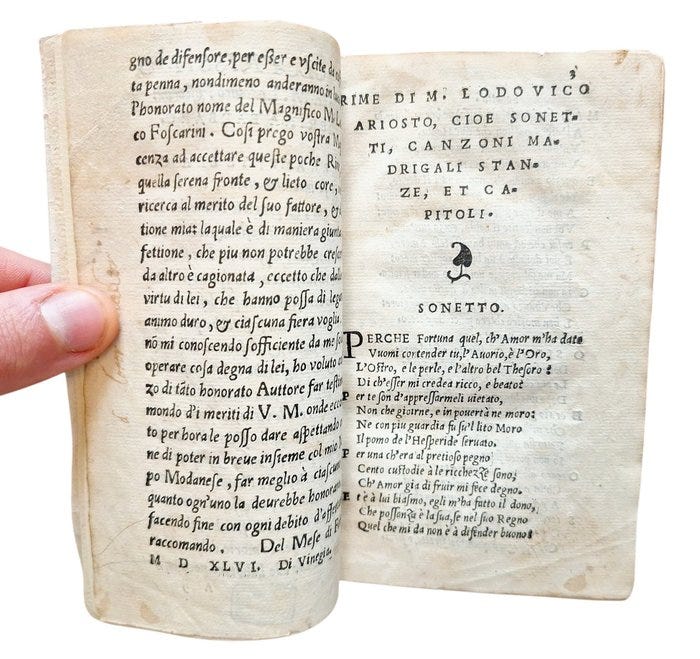 gno de difensore, per eſſer e vſcite da
ta penna, nondimeno anderanno in
l'honorato nome del Magnifico M.
co Foscarini. Coſi prego voſtra
cenza ad accettare queſte poche
quella ſerena fronte, & lieto core,
ricerca al merito del ſuo fattore, &
tione mia: laquale è di maniera
fettione, che piu non potrebbe
da altro è cagionata, eccetto che
virtu di lei, che hanno poſſa di
animo duro, & ciaſcuna fiera voglia
nō mi conoſcendo ſofficiente da me
operare coſa degna di lei, ho voluto
zo di tāto honorato Auttore far
mondo d'i meriti di V. M. onde
to per hora le poſſo dare aſpettando
ne di poter in breue inſieme col mio
po Modaneſe, far meglio à
quanto ogn'uno la deurebbe
facendo fine con ogni debito
raccomando. Del Meſe di
M D XLVI. Di Vinegia
3
RIME DI M. LODOVICO
ARIOSTO, CIOE SONET-
TI, CANZONI MA-
DRIGALI STAN-
ZE, ET CA-
PITOLI.
SONETTO.
PERCHE Fortuna quel, ch'Amor m'ha dato
Vuomi contender tu, l'Auorio, è l'Oro,
L'Oſtro, e le perle, e l'altro bel Theſoro:
Di ch'eſſer mi credea ricco, e beato:
Per te ſon d'appreſſarmeli uietato,
Non che gioirne, e in pouertà ne moro:
Ne con piu guardia fu ſu'l lito Moro
Il pomo de l'Heſperide ſeruato.
Per una ch'era al pretioſo pegno
Cento cuſtodie à le ricchezze ſono,
Ch'Amor gia di fruir mi fece degno.
Et è à lui biaſmo, egli m'ha fatto il dono,
Che poſſonza è la ſua, ſe nel ſuo Regno
Quel che mi da non è à difender buono: